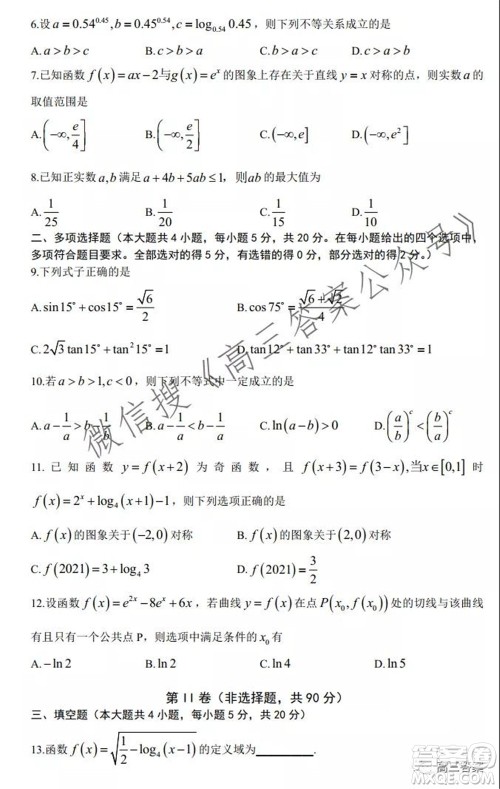 6.设 a=0.54^{0.45}, b=0.45^{0.54}, c=log_{0.54} 0.45，则下列不等关系成立的是
A. a>b>c B. c>b>a C. b>c>a D. c>a>b
7.已知函数 f(x)=ax-2与g(x)=e^x 的图象上存在关于直线 y=x 对称的点，则实数 a 的
取值范围是
A. (-∞, e/4] B. (-∞, e/2] C. (-∞, e] D. (-∞, e^2]
8.已知正实数 a,b 满足 a+4b+5ab≤1，则ab 的最大值为
A. 1/25 B. 1/20 C. 1/15 D. 1/10
二、多项选择题（本大题共 4 小题，每小题 5 分，共 20 分。在每小题给出的四个选项中，
多项符合题目要求。全部选对的得 5 分，有选错的得 0 分，部分选对的得 2 分。）
9.下列式子正确的是
A. sin15°+cos15°=√6/2 B. cos75°=(√6+√2)/-4
C. 2√3 tan15°+tan²15°=1 D. tan12°+tan33°+tan12°tan33°=1
10.若 a>b>1,c<0，则下列不等式中一定成立的是
A. a-1/a>b-1/b B. a-1/b<b-1/a C. ln(a-b)>0 D. (a/b)^c<(b/a)^c
11. 已知函数 y=f(x+2) 为奇函数，且 f(x+3)=f(3-x),当x∈[0,1] 时
f(x)=2^x+log_4(x+1)-1，则下列选项正确的是
A. f(x) 的图象关于 (-2,0) 对称 B. f(x) 的图象关于 (2,0) 对称
C. f(2021)=3+log_4 3 D. f(2021)=3/2
12.设函数 f(x)=e^{2x}-8e^x+6x，若曲线 y=f(x) 在点 P(x_0,f(x_0)) 处的切线与该曲线
有且只有一个公共点 P，则选项中满足条件的 x_0 有
A. -ln2 B. ln2 C. ln4 D. ln5
第 II 卷（非选择题，共 90 分）
三、填空题（本大题共 4 小题，每小题 5 分，共 20 分）
13.函数 f(x)=√(1/2-log_4(x-1)) 的定义域为________.
微信搜《高三答案公众号》
高三答案